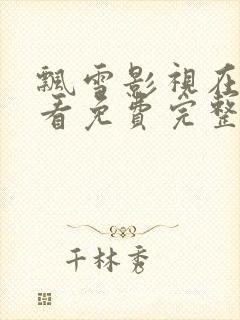 飄雪影視在
看免費完整
千林秀